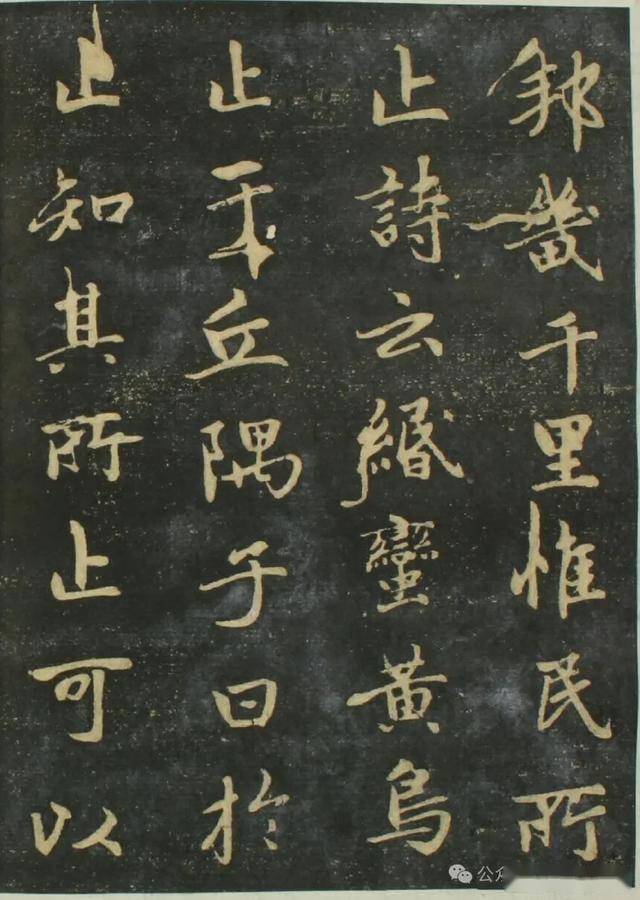 邦畿千里惟民所
止詩云緡蠻黄鳥
止于丘隅子曰於
止知其所止可以
公众